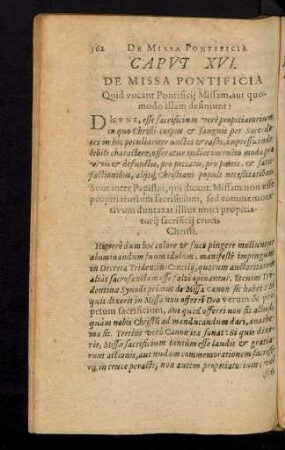 362 DE MISSA PONTIFICIA
CAPVT XVI.
DE MISSA PONTIFICIA
Quid vocant Pontificij Missam, aut quo-
modo illam definiunt?
DICVNT, esse sacrificium verè propitiatorium,
in quo Christi corpus & sanguis per Sacerdo-
tes in hoc peculiariter unctos & rasos, impressu in-
delebili charactere, offeratur indies incruento modo pro
vivis & defunctis, pro peccatis, pro pœnis, & satis-
factionibus, aliisq; Christiani populi necessitatibus.
Sunt inter Papistas, qui dicant, Missam non esse
propitiatorium sacrificium, sed commemora-
tivum duntaxat illius unici propitia-
torij sacrificij crucis
Christi.
Hi verò dum hoc colore & fuco pingere moliuntur
abominandum suum idolum, manifestè impingunt
in Decreta Tridentini Concilij, quorum authoritatem
aliàs sacrosanctam esse
dentina Synodi primus de Missa canon sic habet: Si
quis dixerit in Missa Non offerri Deo verum & pro-
prium sacrificium, aut quod offerri non sit aliud,
quàm nobis Christum ad manducandum dari, anathe-
ma sit. Tertius verò Canon ita sonat: Si quis dixe-
rit, Missæ sacrificium tantùm esse laudis & gratia-
rum actionis, aut nudam commemorationem sacrifi-
cij, in cruce peracti, non autem propitiatorium;